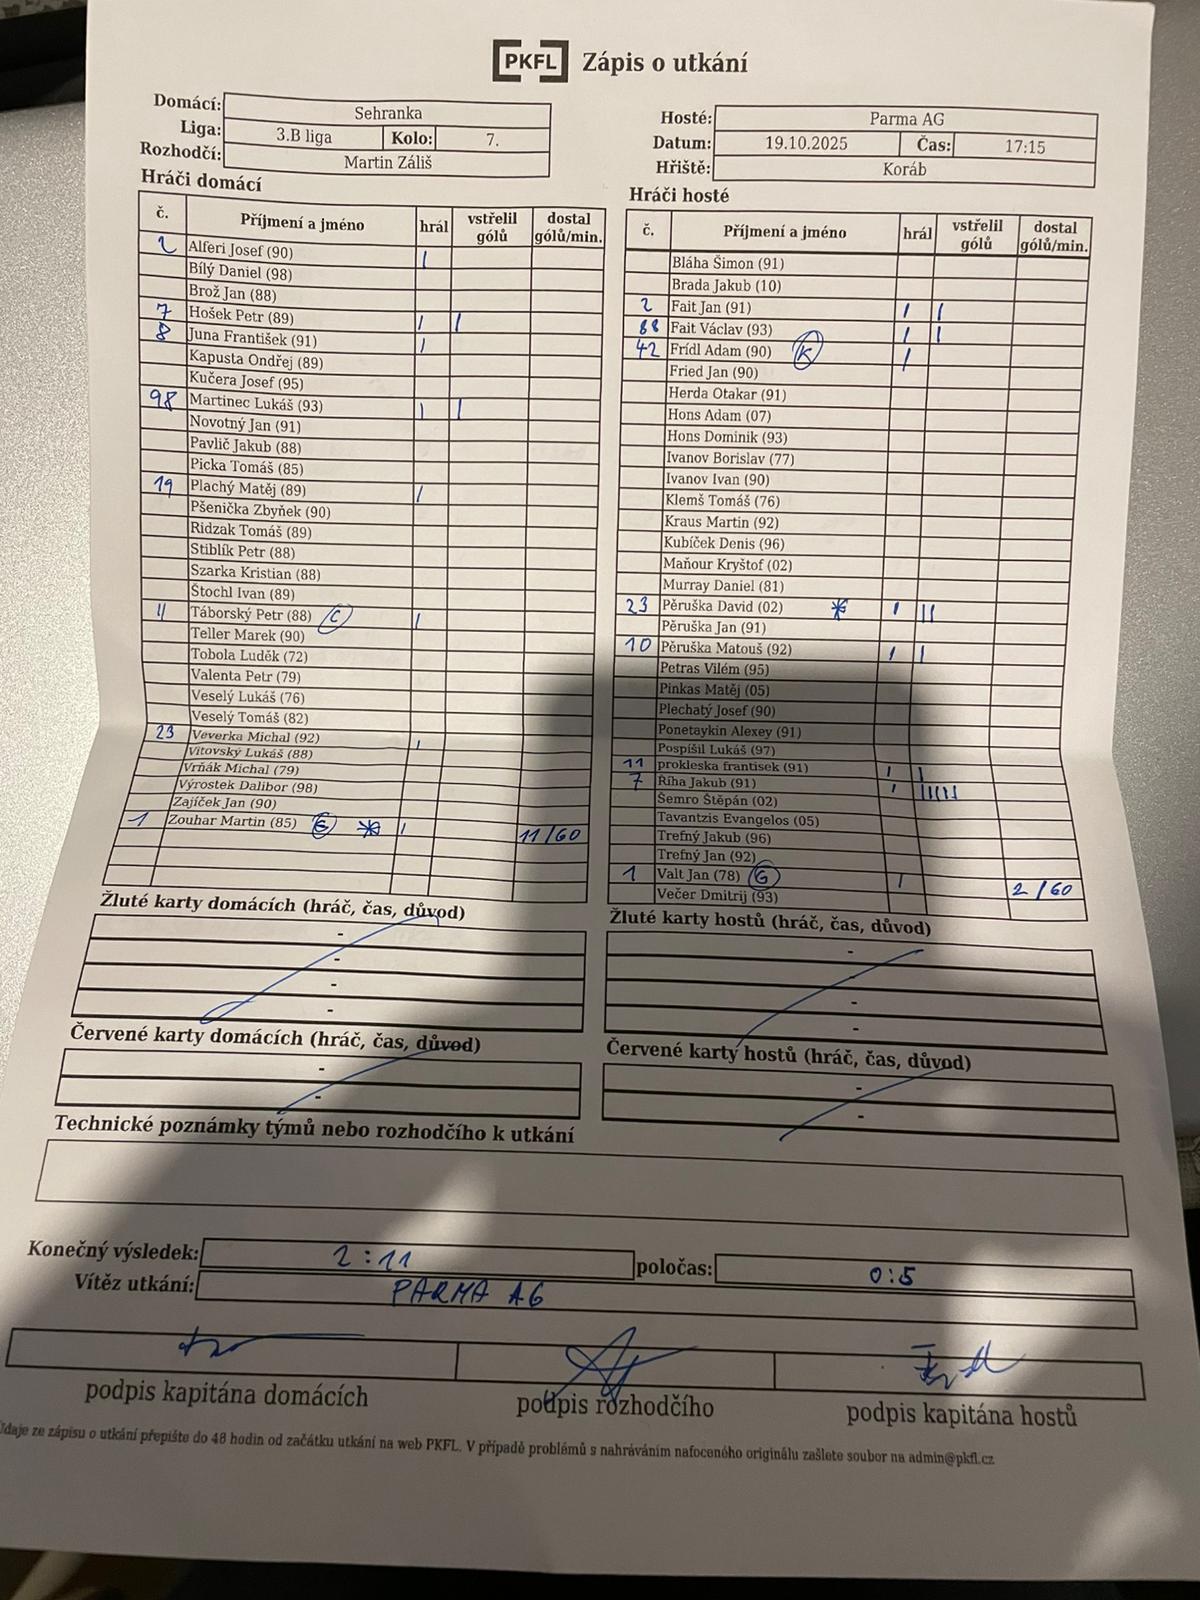 PKFL Zápis o utkání
Domácí: Sehranka
Liga: 3.B liga Kolo: 7.
Rozhodčí: Martin Záliš
Hosté: Parma AG
Datum: 19.10.2025 Čas: 17:15
Hřiště: Koráb
Hráči domácí
č. Příjmení a jméno hrál vstřelil gólů dostal gólů/min.
2 Alferi Josef (90) I
Bílý Daniel (98)
Brož Jan (88)
7 Hošek Petr (89) I I
8 Juna František (91) I
Kapusta Ondřej (89)
Kučera Josef (95)
98 Martinec Lukáš (93) I I
Novotný Jan (91)
Pavlič Jakub (88)
Picka Tomáš (85)
19 Plachý Matěj (89) I
Pšenička Zbyňek (90)
Ridzak Tomáš (89)
Stiblík Petr (88)
Szarka Kristian (88)
Štochl Ivan (89)
11 Táborský Petr (88) C I
Teller Marek (90)
Tobola Luděk (72)
Valenta Petr (79)
Veselý Lukáš (76)
Veselý Tomáš (82)
23 Veverka Michal (92) I
Vitovský Lukáš (88)
Vrňák Michal (79)
Výrostek Dalibor (98)
Zajíček Jan (90)
1 Zouhar Martin (85) G * I 11/60
Hráči hosté
č. Příjmení a jméno hrál vstřelil gólů dostal gólů/min.
Bláha Šimon (91)
Brada Jakub (10)
2 Fait Jan (91) I I
88 Fait Václav (93) I I
42 Frídl Adam (90) K I
Fried Jan (90)
Herda Otakar (91)
Hons Adam (07)
Hons Dominik (93)
Ivanov Borislav (77)
Ivanov Ivan (90)
Klemš Tomáš (76)
Kraus Martin (92)
Kubíček Denis (96)
Maňour Kryštof (02)
Murray Daniel (81)
23 Pěruška David (02) * I II
Pěruška Jan (91)
10 Pěruška Matouš (92) I I
Petras Vilém (95)
Pinkas Matěj (05)
Plechatý Josef (90)
Ponetaykin Alexey (91)
Pospíšil Lukáš (97)
11 prokleska frantisek (91) I I
7 Říha Jakub (91) I IIIII
Šemro Štěpán (02)
Tavantzis Evangelos (05)
Trefný Jakub (96)
Trefný Jan (92)
1 Valt Jan (78) G I 2/60
Večer Dmitrij (93)
Žluté karty domácích (hráč, čas, důvod)
-
-
-
-
Žluté karty hostů (hráč, čas, důvod)
-
-
-
-
Červené karty domácích (hráč, čas, důvod)
-
-
Červené karty hostů (hráč, čas, důvod)
-
-
Technické poznámky týmů nebo rozhodčího k utkání
Konečný výsledek: 2:11 poločas: 0:5
Vítěz utkání: PARMA AG
podpis kapitána domácích podpis rozhodčího podpis kapitána hostů
Údaje ze zápisu o utkání přepište do 48 hodin od začátku utkání na web PKFL. V případě problémů s nahráváním nafoceného originálu zašlete soubor na admin@pkfl.cz